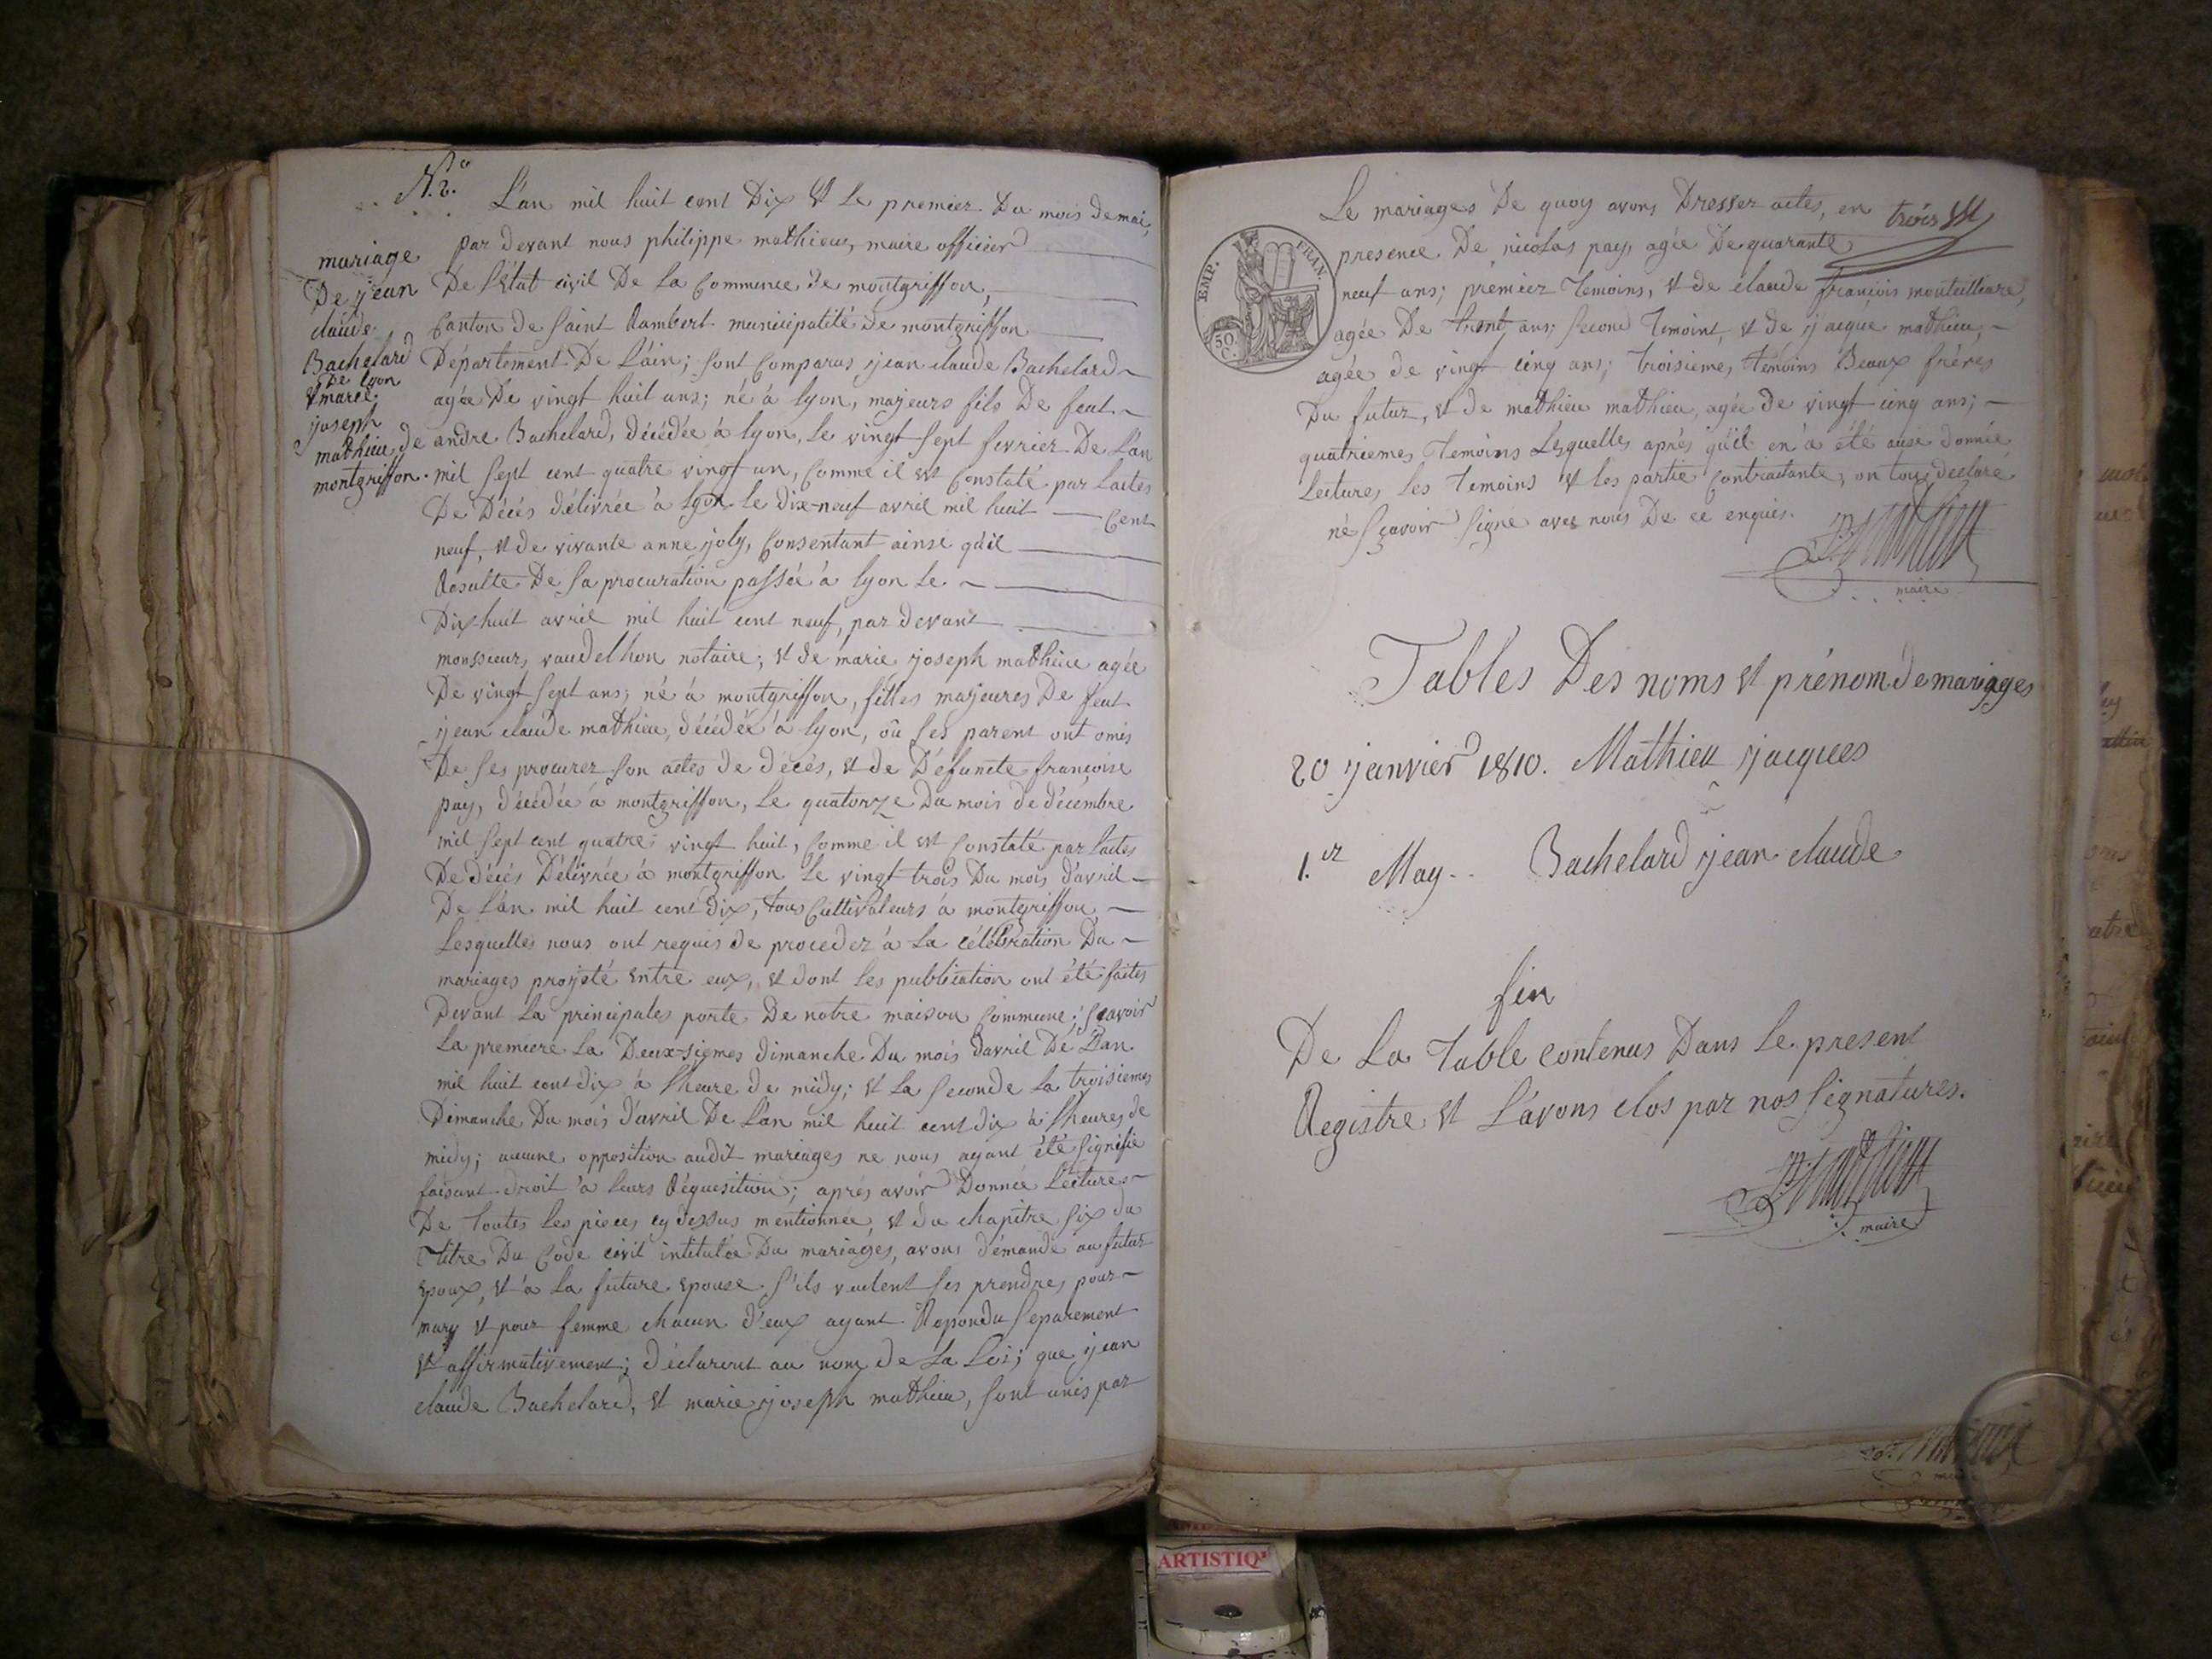 N.º 2.
mariage
De jean
claude
Bachelard
De lyon
& marie
joseph
mathieu de
montgriffon.
L'an mil huit cent Dix et le premier Du mois de mai,
par devant nous philippe mathieu, maire officier
De l'état civil De la Commune de montgriffon,
Canton de Saint Rambert municipalité de montgriffon
Département De l'ain; sont Comparus jean claude Bachelard
agée De vingt huit ans; né à lyon, majeurs fils De feut
andre Bachelard, décédée à lyon, le vingt sept fevrier De l'an
mil sept cent quatre vingt un, Comme il est Constaté par l'actes
De Décés délivrée à lyon le dix-neuf avril mil huit cent
neuf, et de vivante anne joly, Consentant ainsi qu'il
Resulte De sa procuration passée à lyon le
Dix huit avril mil huit cent neuf, par devant
monssieurs vaudelhon notaire; et de marie joseph mathieu agée
De vingt sept ans; né à montgriffon, filles majeures De feut
jean claude mathieu, décédée à lyon, où ses parent ont omis
De ses procurer son actes de décés, et de Défuncte françoise
pay, décédée à montgriffon, le quatorze Du mois de décembre
mil sept cent quatre vingt huit, Comme il est Constaté par l'actes
De décés Délivrée à montgriffon le vingt trois Du mois d'avril
De l'an mil huit cent dix, tous Cultivateurs à montgriffon
Lesquelles nous ont requis de proceder à la célébration Du
mariages projeté entre eux, et dont les publication ont été faites
Devant la principales porte De notre maison Commune; sçavoir
la premiere la Deux-siemes dimanche Du mois d'avril De l'an
mil huit cent dix à l'heure de midy; et la seconde la troisiemes
Dimanche Du mois d'avril De l'an mil huit cent dix à l'heures de
midy; aucune opposition audit mariages ne nous ayant été signifie
faisant droit à leurs Réquesition; après avoir Donnée lectures
De toutes les pieces cy dessus mentionnée, et du chapitre six du
Titre Du Code civil intitulée Du mariages, avons démandé au futur
epoux, et à la future epouse s'ils veulent ses prendres pour
mary et pour femme chacun d'eux ayant Repondu separement
et affirmativement; déclarent au nom de la Loi; que jean
claude Bachelard, et marie joseph mathieu, sont unis par
Le mariages De quoy avons Dresser actes, en
presence De nicolas pay, agée De quarante
neuf ans; premier Temoins, et de claude françois
agée De trent ans; second Temoint, et de jacque mathieu,
agée de vingt cinq ans; troisiemes Temoins Beaux frères
Du futur, et de mathieu mathieu, agée de vingt cinq ans;
quatriemes Temoins Lesquelles après qu'il en a été aussi donnée
Lectures, les Temoins et les partie Contractante, on tous declaré
né sçavoir signé avec nous De ce enquis.
maire
EMP. FRAN.
50 C.
Tables Des noms et prénom de mariages
20 janvier 1810. Mathieu jacques
1.er May.. Bachelard jean claude
fin
De La Table contenus Dans le present
Registre et l'avons clos par nos signatures.
maire
ARTISTIQ